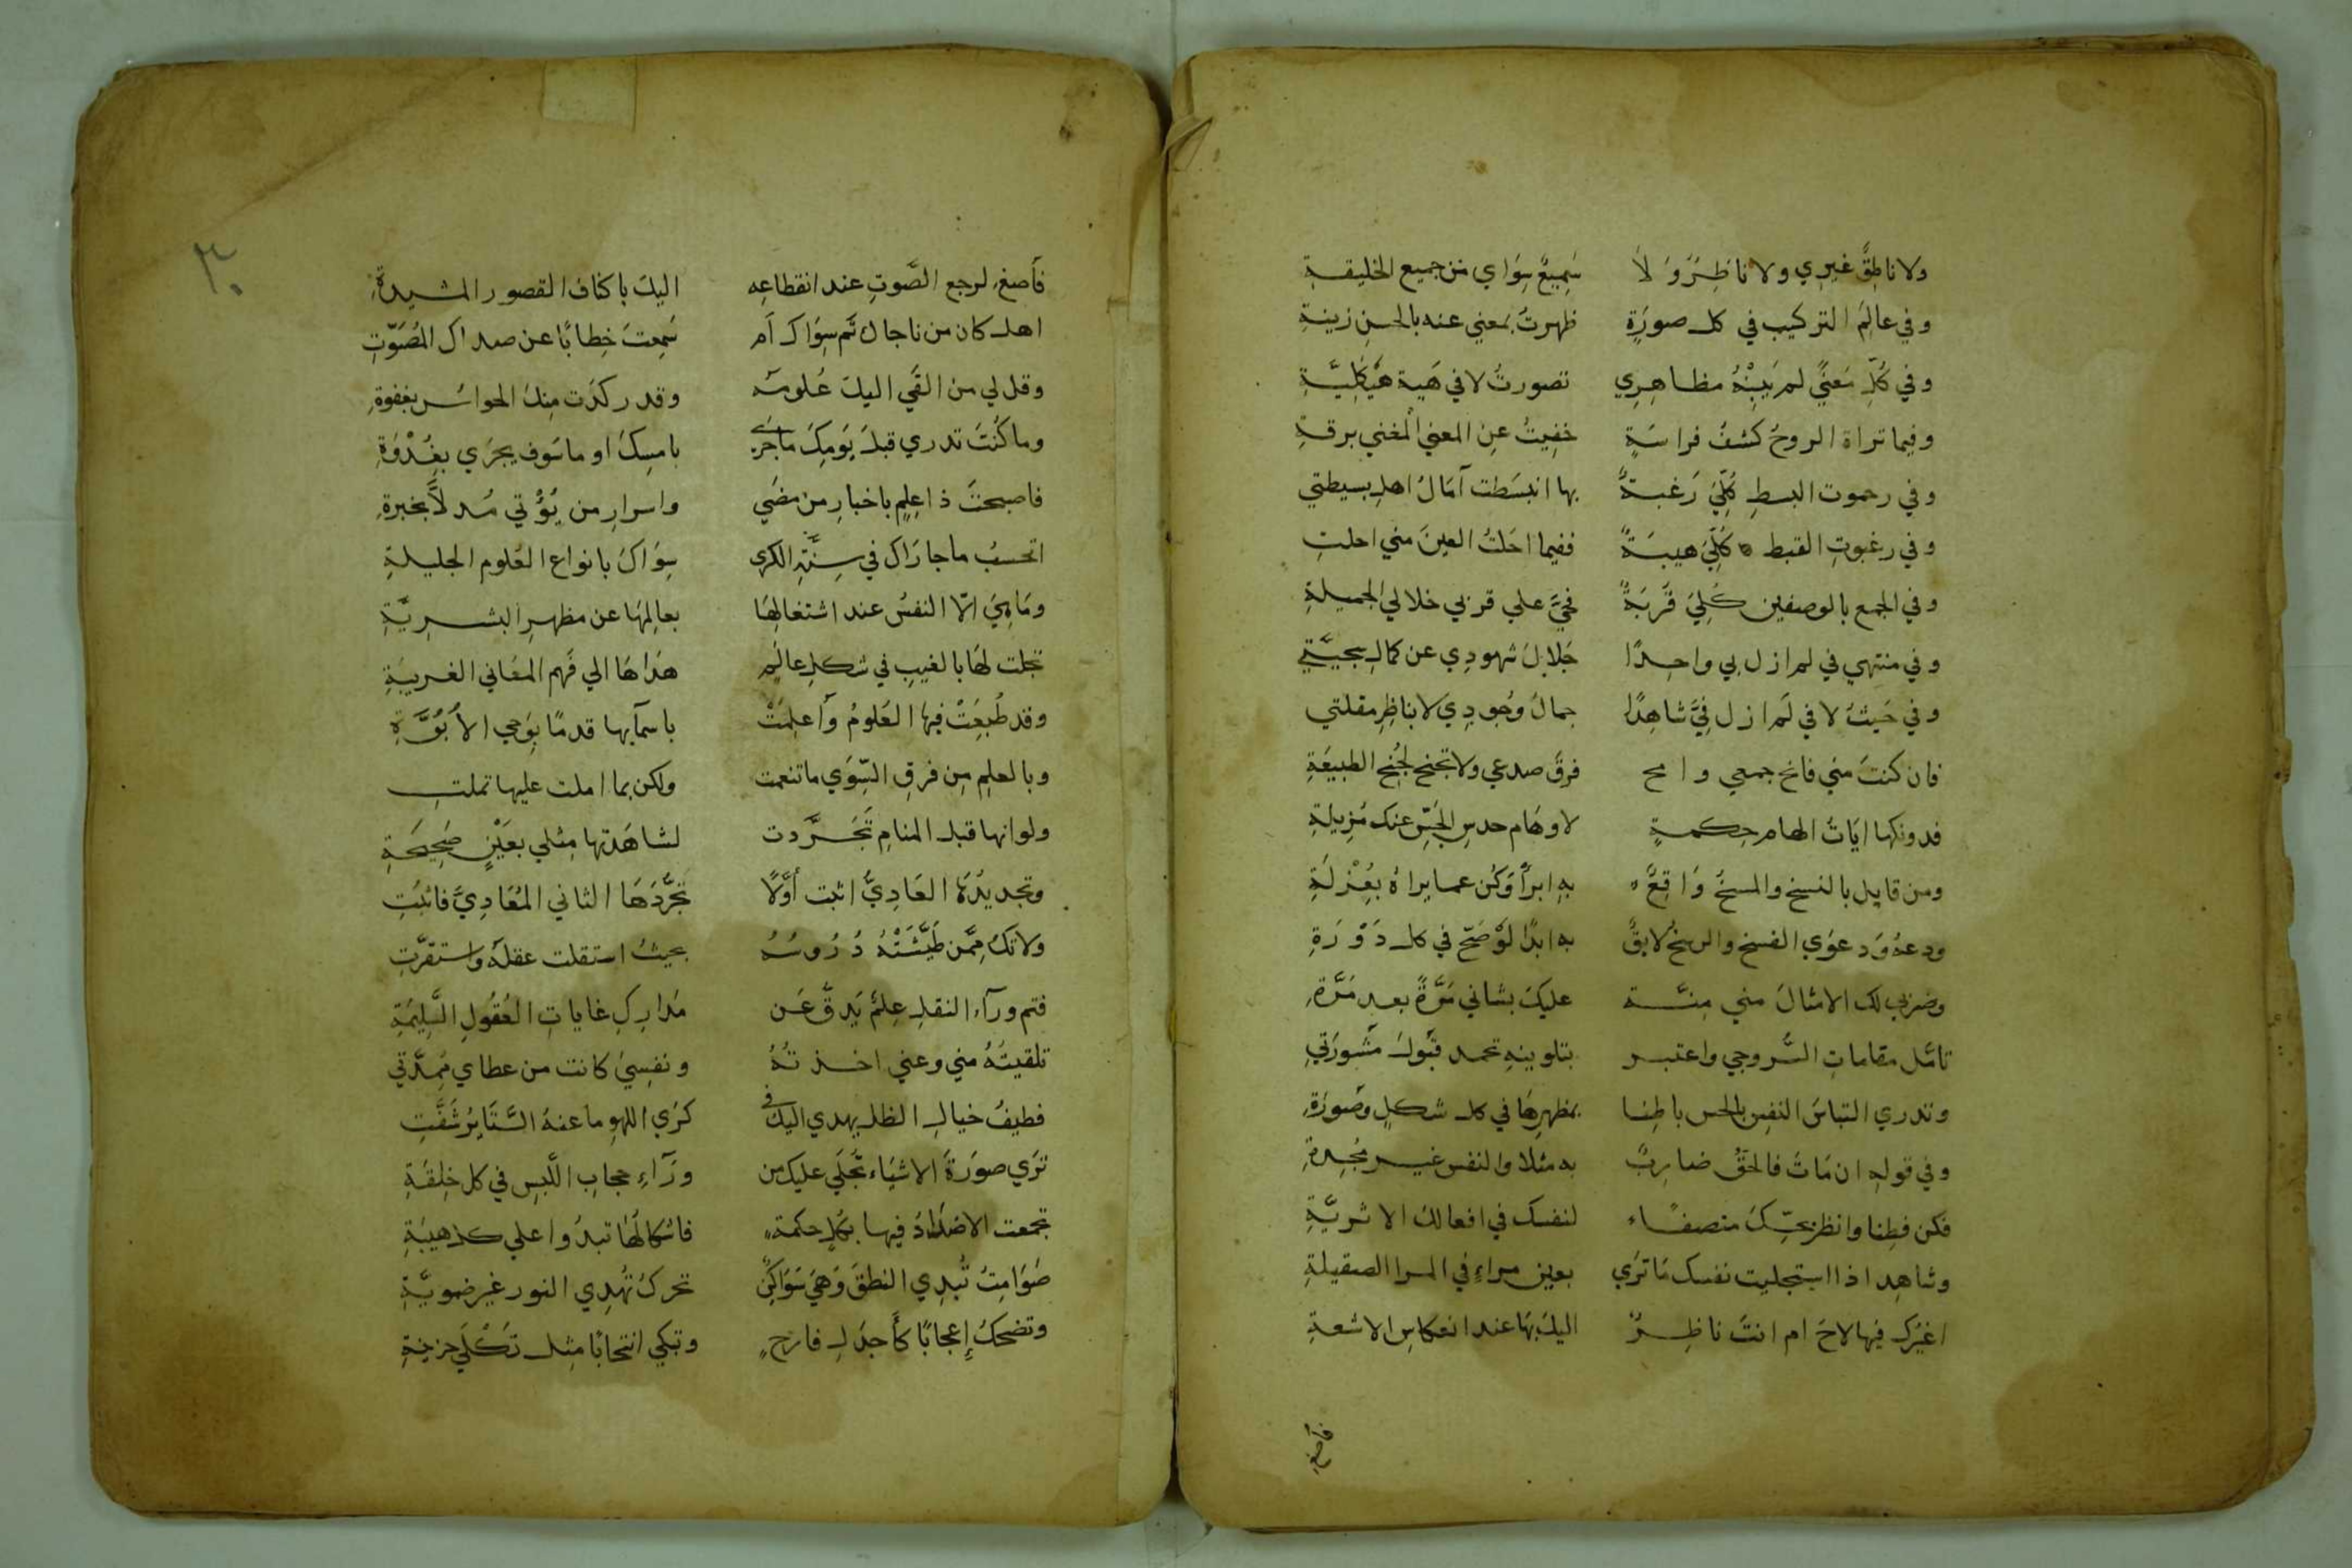 ولا ناطِقٌ غيري ولا ناظِرٌ وَ لا سَمِيعٌ سِوَاي من جميع الخليقةِ
وفي عالَم التركيب في كل صورَةٍ ظهرتُ بمَعني عنه بالحسنِ زينةِ
وفي كُلِّ مَعنيً لم تَبِنْهُ مظاهِرِي تصورتُ لا في هَية هَيْكَلِيَّةِ
وفيما تراهُ الروحُ كشفُ فراسَةٍ خفِيتُ عنِ المعنيِ المُعَني برقةِ
وفي رحموت البسطِ كُلّيَ رَغبةٌ بها انبسَطت آمَالُ اهلِ بسيطتي
وفي رغبوتِ القبط كُلِّيَ هيبَةٌ ففيما اجَلتُ العينَ مني اجلتِ
وفي الجمع بالوصفين كُلِّيَ قُربَةٌ فحَيَّ علي قربي خلالي الجميلةِ
وفي منتهي في لم ازل بي واجِدًا جَلالَ شهودِي عن كمالِ سجيَّتي
وفي حَيثُ لا في لَم ازل فيَّ شاهِدًا جمالَ وُجودِي لا بناظِرِ مقلتي
فان كنتَ مني فانح جمعي وامح فرقَ صدعي ولا تجنح لجُنح الطبيعَةِ
فدونكها ايَاتُ الهام حِكمةٍ لاوهَام حدسِ الحِسِّ عنك مُزِيلةِ
ومن قايل بالنسخ والمسخُ وَاقِعٌ به ابرأ وَكُن عما يراهُ بعُزلَةِ
ودعهُ وَدعوَي الفسخ والرسخُ لايقٌ به ابدًا لَوْ صَحّ في كل دَوْرَةِ
وضربي لك الامثالَ مني مِنَّة عليكَ بشاني مَرَّةً بعد مَرَّةِ
تامّل مقاماتِ السَّروجي واعتبر بتلوينهِ تحمد قبُولَ مَشُورَتي
وتدري التباسَ النفسِ بالحس باطِنا بمظهرِهَا في كل شكلٍ وصُورَةِ
وفي قولهِ ان مَاتَ فالحَقُّ ضارِبٌ به مثلا والنفس غير مُجِدةِ
فكن فطِنا وانظر بحِسِّكَ منصفًاء لنفسك في افعالك الاثريَّةِ
وشاهِد اذا استجليت نفسك مَا ترَي بعين مراءٍ في المرا الصقيلةِ
اغيرُك فيها لاحَ ام انتَ ناظِرٌ اليكَ بهَا عند انعكاسِ الاشعةِ
فأصغِ
٣٠
فأصغِ لرجع الصَّوتِ عند انقطاعِه اليك باكناف القصور المشيدةِ
اهل كان من ناجاك ثَم سِوَاك اَم سَمِعتَ خِطابًا عن صداك المُصَوّتِ
وقل لي من القَي اليكَ عُلومَه وقد ركدَت مِنكَ الحواسُ بغفوةِ
وما كُنتَ تدري قبلَ يَومِكَ ماجَرَي بامسِكَ او ما سَوف يجرَي بغُدْوَةِ
فاصبحتَ ذا عِلمٍ باخبارِ من مضَي واسرارِ من يُؤْتي مُدلًّا بخبرةِ
اتحسبُ ما جارَاكَ في سِنَةِ الكرى سِوَاكَ بانواع العُلوم الجليلةِ
ومَا هِيَ الّا النفسُ عند اشتغالِهَا بعالِمهَا عن مظهرِ البشرِيَّةِ
تجلت لهَا بالغيبِ في شكلِ عالِمٍ هَداهَا الي فَهم المعَاني الغريبَةِ
وقد طُبِعَتْ فيها العُلومُ وَأعلِمَتْ باسمآيها قدمًا بوَحي الأبُوَّةِ
وبالعلِم مِن فرقِ السِّوَي ما تنعمت ولكن بما املت عليها تملتِ
ولو انها قبل المنام تَجَرَّدت لشاهَدتها مِثلي بعَيْنٍ صَحِيحَةِ
وتجديدُهَا العَادِيُّ اثبت أوَّلًا تجَرُّدَهَا الثاني المُعَادِيَّ فاثبُتِ
ولا تكُ مِمَّن طَيَّشَتْهُ دُرُوسُهُ بحيثُ استقلت عقلَهُ واستقرَّتِ
فثم ورآء النقلِ عِلمٌ يَدِقُّ عَن مَدارِكِ غاياتِ العُقُولِ السَّلِيمَةِ
تلقيتُهُ مني وعني اخذتُهُ ونفسِيَ كانت من عطاي مُمِدَّتي
فطيفُ خيالِ الظل يهدي اليكَ في كرَي اللهوِ ما عنهُ السَّتَايرُ شَفَّتِ
ترَي صورَةَ الاشيَاء تجَلَي عليك من ورَآءِ حجابِ اللَّبسِ في كل خِلقَةِ
تجمعت الاضدَادُ فيها بكلِ حكمةٍ فاشكالُهَا تبدُوا علي كل هيبَةِ
صَوَامِتُ تُبدِي النطقَ وَهيَ سَوَاكِنٌ تحركُ تُهدِي النور غير ضمويَّةِ
وتضحكُ إِعجابًا كأَجذَلِ فارحٍ وتبكي انتحابًا مِثل ثَكْلَي حزينةِ